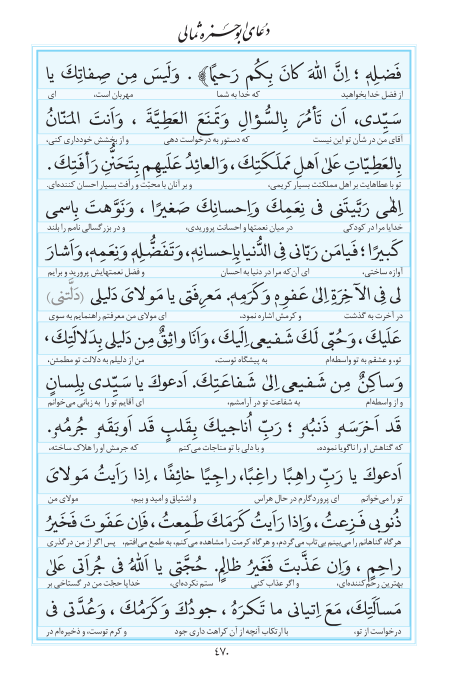 دعای ابوحمزه ثمالی
فَضلِهِ ؛ اِنَّ اللهَ کانَ بِکُم رَحیمًا﴾ . وَلَیسَ مِن صِفاتِکَ یا
از فضل خدا بخواهید که خدا به شما مهربان است، ای
سَیِّدی، اَن تَأمُرَ بِالسُّؤالِ وَتَمنَعَ العَطِیَّةَ ، وَاَنتَ المَنّانُ
آقای من در شأن تو این نیست که دستور به درخواست دهی و از بخشش خودداری کنی،
بِالعَطِیّاتِ عَلیٰ اَهلِ مَملَکَتِکَ، وَالعائِدُ عَلَیهِم بِتَحَنُّنِ رَأفَتِکَ.
تو با عطاهایت بر اهل مملکتت بسیار کریمی، و بر آنان با محبّت و رأفت بسیار احسان کننده‌ای.
اِلٰهی رَبَّیتَنی فی نِعَمِکَ وَاِحسانِکَ صَغیرًا ، وَنَوَّهتَ بِاسمی
خدایا مرا در کودکی در میان نعمتها و احسانت پروریدی، و در بزرگسالی نامم را بلند
کَبیرًا ؛ فَیامَن رَبّانی فِی الدُّنیا بِاِحسانِهِ، وَتَفَضُّلِهِ وَنِعَمِهِ، وَاَشارَ
آوازه ساختی، ای آن‌که مرا در دنیا به احسان و فضل نعمتهایش پرورید و برایم
لی فِی الآخِرَةِ اِلیٰ عَفوِهِ وَکَرَمِهِ. مَعرِفَتی یا مَولایَ دَلیلی (دَلَّتنی)
در آخرت به گذشت و کرمش اشاره نمود، ای مولای من معرفتم راهنمایم به سوی
عَلَیکَ، وَحُبّی لَکَ شَفیعی اِلَیکَ، وَاَنَا واثِقٌ مِن دَلیلی بِدَلالَتِکَ،
تو، و عشقم به تو واسطه‌ام به پیشگاه توست، من از دلیلم به دلالت تو مطمئن،
وَساکِنٌ مِن شَفیعی اِلیٰ شَفاعَتِکَ. اَدعوکَ یا سَیِّدی بِلِسانٍ
و از واسطه‌ام به شفاعت تو در آرامشم، ای آقایم تو را به زبانی می‌خوانم
قَد اَخرَسَهُ ذَنبُهُ ؛ رَبِّ اُناجیکَ بِقَلبٍ قَد اَوبَقَهُ جُرمُهُ.
که گناهش او را ناگویا نموده، و با دلی با تو مناجات می‌کنم که جرمش او را هلاک ساخته،
اَدعوکَ یا رَبِّ راهِبًا راغِبًا، راجِیًا خائِفًا ، اِذا رَاَیتُ مَولایَ
تو را می‌خوانم ای پروردگارم در حال هراس و اشتیاق و امید و بیم، مولای من
ذُنوبی فَزِعتُ، وَاِذا رَاَیتُ کَرَمَکَ طَمِعتُ، فَاِن عَفَوتَ فَخَیرُ
هرگاه گناهانم را می‌بینم بی‌تاب می‌گردم، و هرگاه کرمت را مشاهده می‌کنم، به طمع می‌افتم، پس اگر از من درگذری
راحِمٍ ، وَاِن عَذَّبتَ فَغَیرُ ظالِمٍ. حُجَّتی یا اَللهُ فی جُراَتی عَلیٰ
بهترین رحم کننده‌ای، و اگر عذاب کنی ستم نکرده‌ای، خدایا حجّت من در گستاخی بر
مَساَلَتِکَ، مَعَ اِتیانی ما تَکرَهُ ، جودُکَ وَکَرَمُکَ ، وَعُدَّتی فی
درخواست از تو، با ارتکاب آنچه از آن کراهت داری جود و کرم توست، و ذخیره‌ام در
٤٧٠